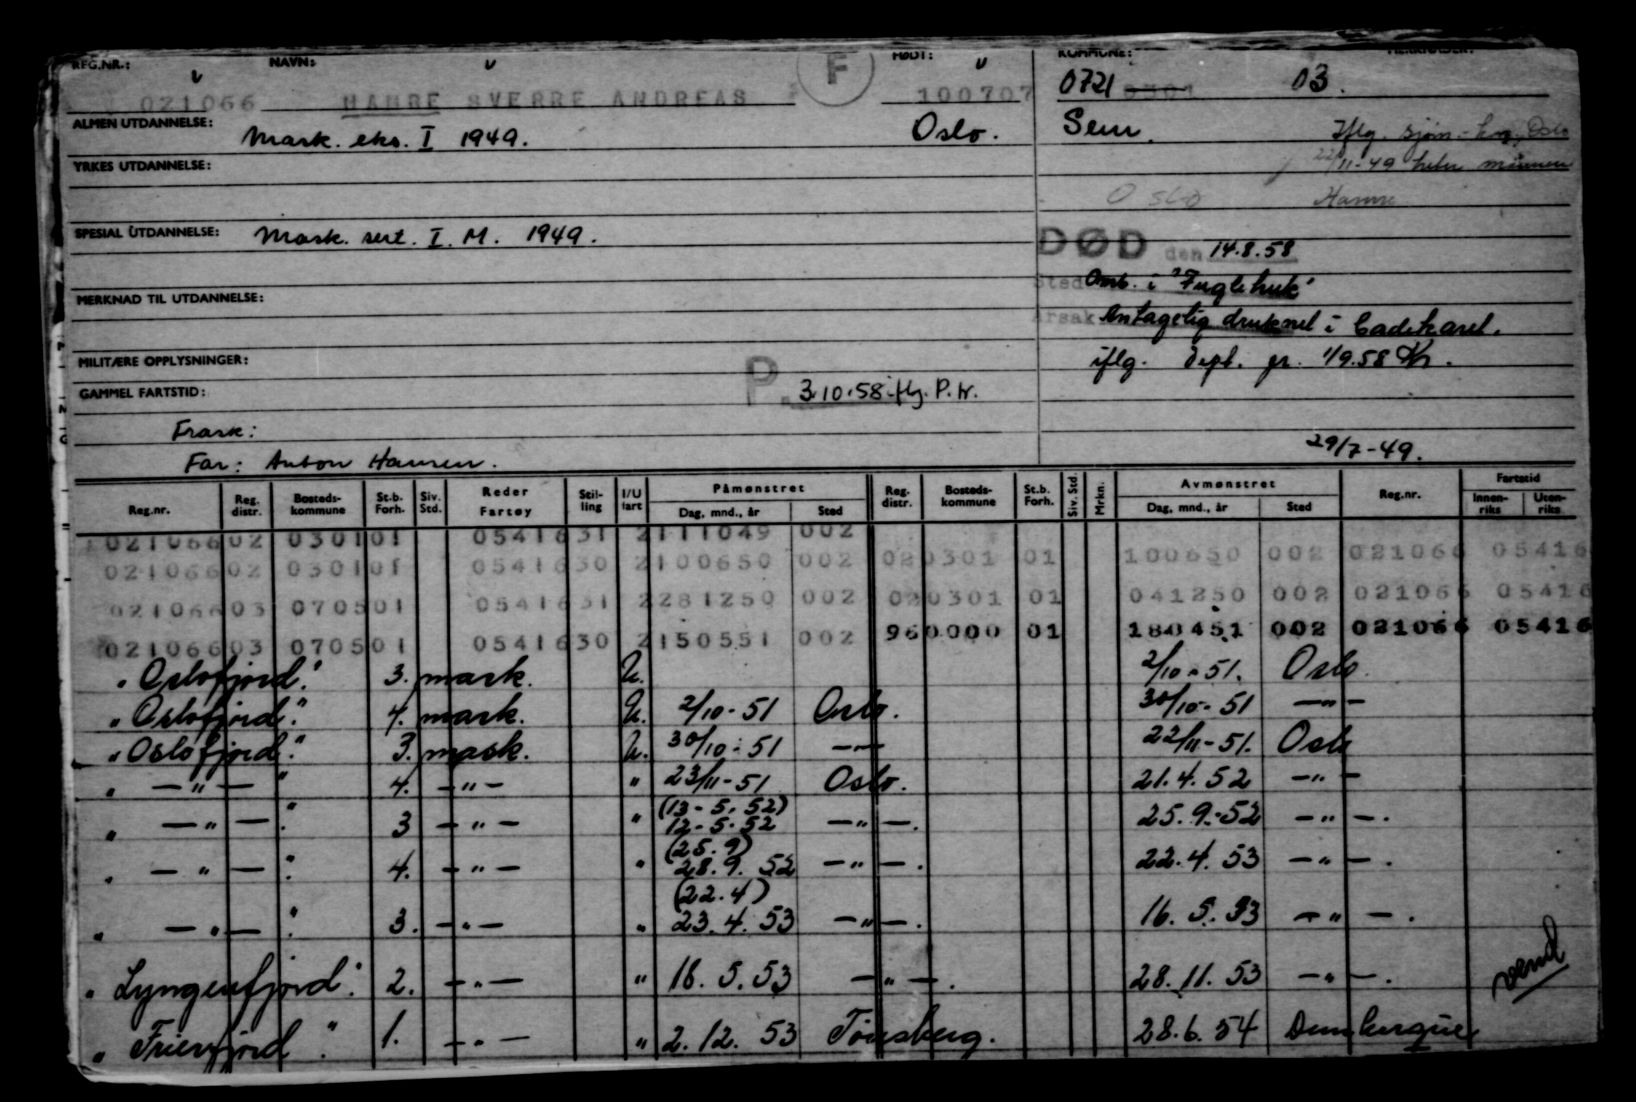 REG.NR.: NAVN: FØDT: KOMMUNE:
021066 HAMRE SVERRE ANDREAS F 100707 0721 0301 03.
ALMEN UTDANNELSE: Mask. eks. I 1949. Oslo. Sem. Iflg. sjøm.-kom. Oslo
YRKES UTDANNELSE: 22/11-49 heter mannen
Oslo Hamre
SPESIAL UTDANNELSE: Mask. sert. I. M. 1949.
DØD den 14.8.58
Sted Omb. i "Fuglehuk"
MERKNAD TIL UTDANNELSE:
Årsak Antagelig druknet i Cadekanel.
MILITÆRE OPPLYSNINGER: iflg. Dept. pr. 1/9.58
GAMMEL FARTSTID: P. 3.10.58 iflg. P.
Frask:
Far: Anton Hansen. 29/7-49.
Reg.nr. Reg. distr. Bosteds-kommune St.b. Forh. Siv. Std. Reder Fartøy Stil-ling I/U fart Påmønstret Dag, mnd., år Sted Reg. distr. Bosteds-kommune St.b. Forh. Siv. Std. Mrkn. Avmønstret Dag, mnd., år Sted Reg.nr. Fartstid Innen-riks Uten-riks
021066 02 0301 01 05416 31 2 111049 002
021066 02 0301 01 05416 30 2 100650 002 02 0301 01 100650 002 021066 05416
021066 03 0705 01 05416 31 2 281250 002 02 0301 01 041250 002 021066 05416
021066 03 0705 01 05416 30 2 150551 002 96 0000 01 180451 002 021066 05416
"Oslofjord". 3. mask. U. 2/10-51. Oslo.
"Oslofjord". 4. mask. U. 2/10-51 Oslo. 30/10-51 —"—
"Oslofjord". 3. mask. U. 30/10-51 —"— 22/11-51. Oslo
" —"— " 4. —"— " 23/11-51 Oslo. 21.4.52 —"—
" —"— ". 3 —"— " (13-5.52) 12-5.52 —"—. 25.9.-52 —"—.
" —"— ". 4. —"— " (25.9) 28.9.52 —"—. 22.4.53 —"—.
" —"— ". 3. —"— " (22.4) 23.4.53 —"—. 16.5.53 —"—.
"Lyngenfjord". 2. —"— " 16.5.53 —"—. 28.11.53 —"—. vend
"Frierfjord". 1. —"— " 2.12.53 Tønsberg. 28.6.54 Dunkerque